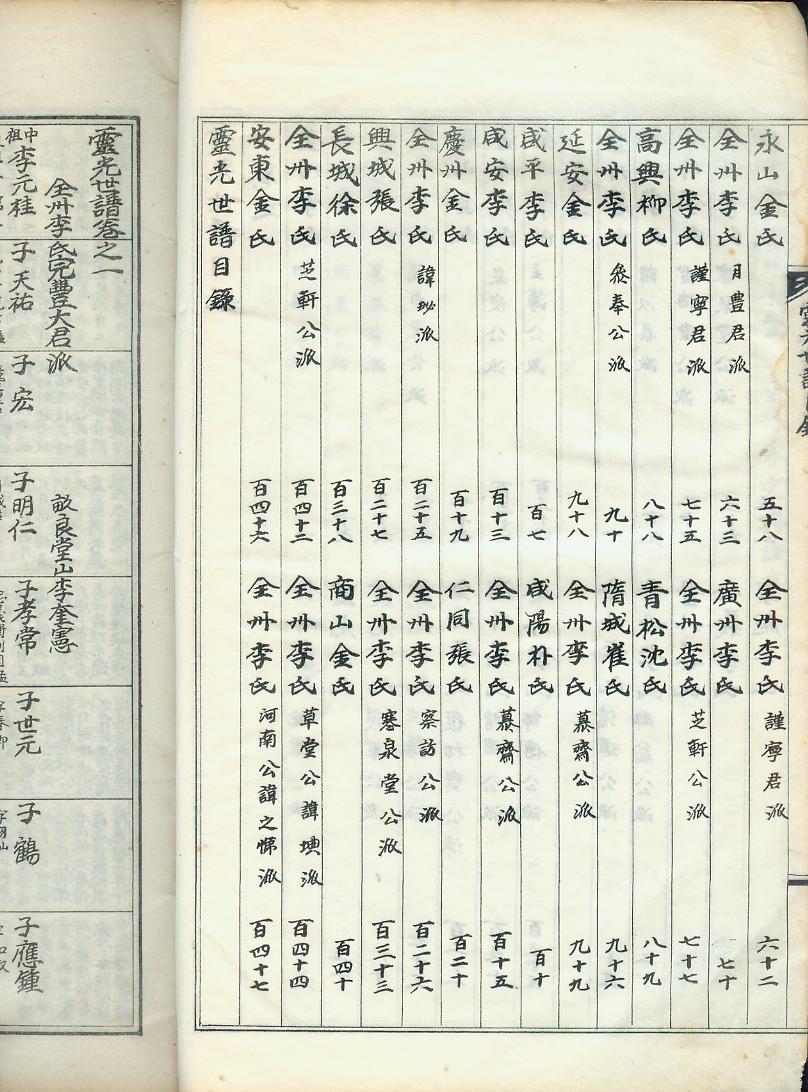 永山金氏 五十八 全州李氏 謹寧君派 六十二
全州李氏 月豊君派 六十三 廣州李氏 七十
全州李氏 謹寧君派 七十五 全州李氏 芝軒公派 七十七
高興柳氏 八十八 青松沈氏 八十九
全州李氏 叅奉公派 九十 隋城崔氏 九十六
延安金氏 九十八 全州李氏 慕齋公派 九十九
咸平李氏 百七 咸陽朴氏 百十
咸安李氏 百十三 全州李氏 慕齋公派 百十五
慶州金氏 百十九 仁同張氏 百二十
全州李氏 諱珌派 百二十五 全州李氏 察訪公派 百二十六
興城張氏 百二十七 全州李氏 寒泉堂公派 百三十三
長城徐氏 百三十八 商山金氏 百四十
全州李氏 芝軒公派 百四十二 全州李氏 草堂公諱㙉派 百四十四
安東金氏 百四十六 全州李氏 河南公諱之悌派 百四十七
靈光世譜目錄
靈光世譜卷之一
全州李氏完豊大君派 畝良堂山李奎憲
中祖 李元桂 子天祐 子宏 子明仁 子孝常 子世元 子鶴 子應鍾